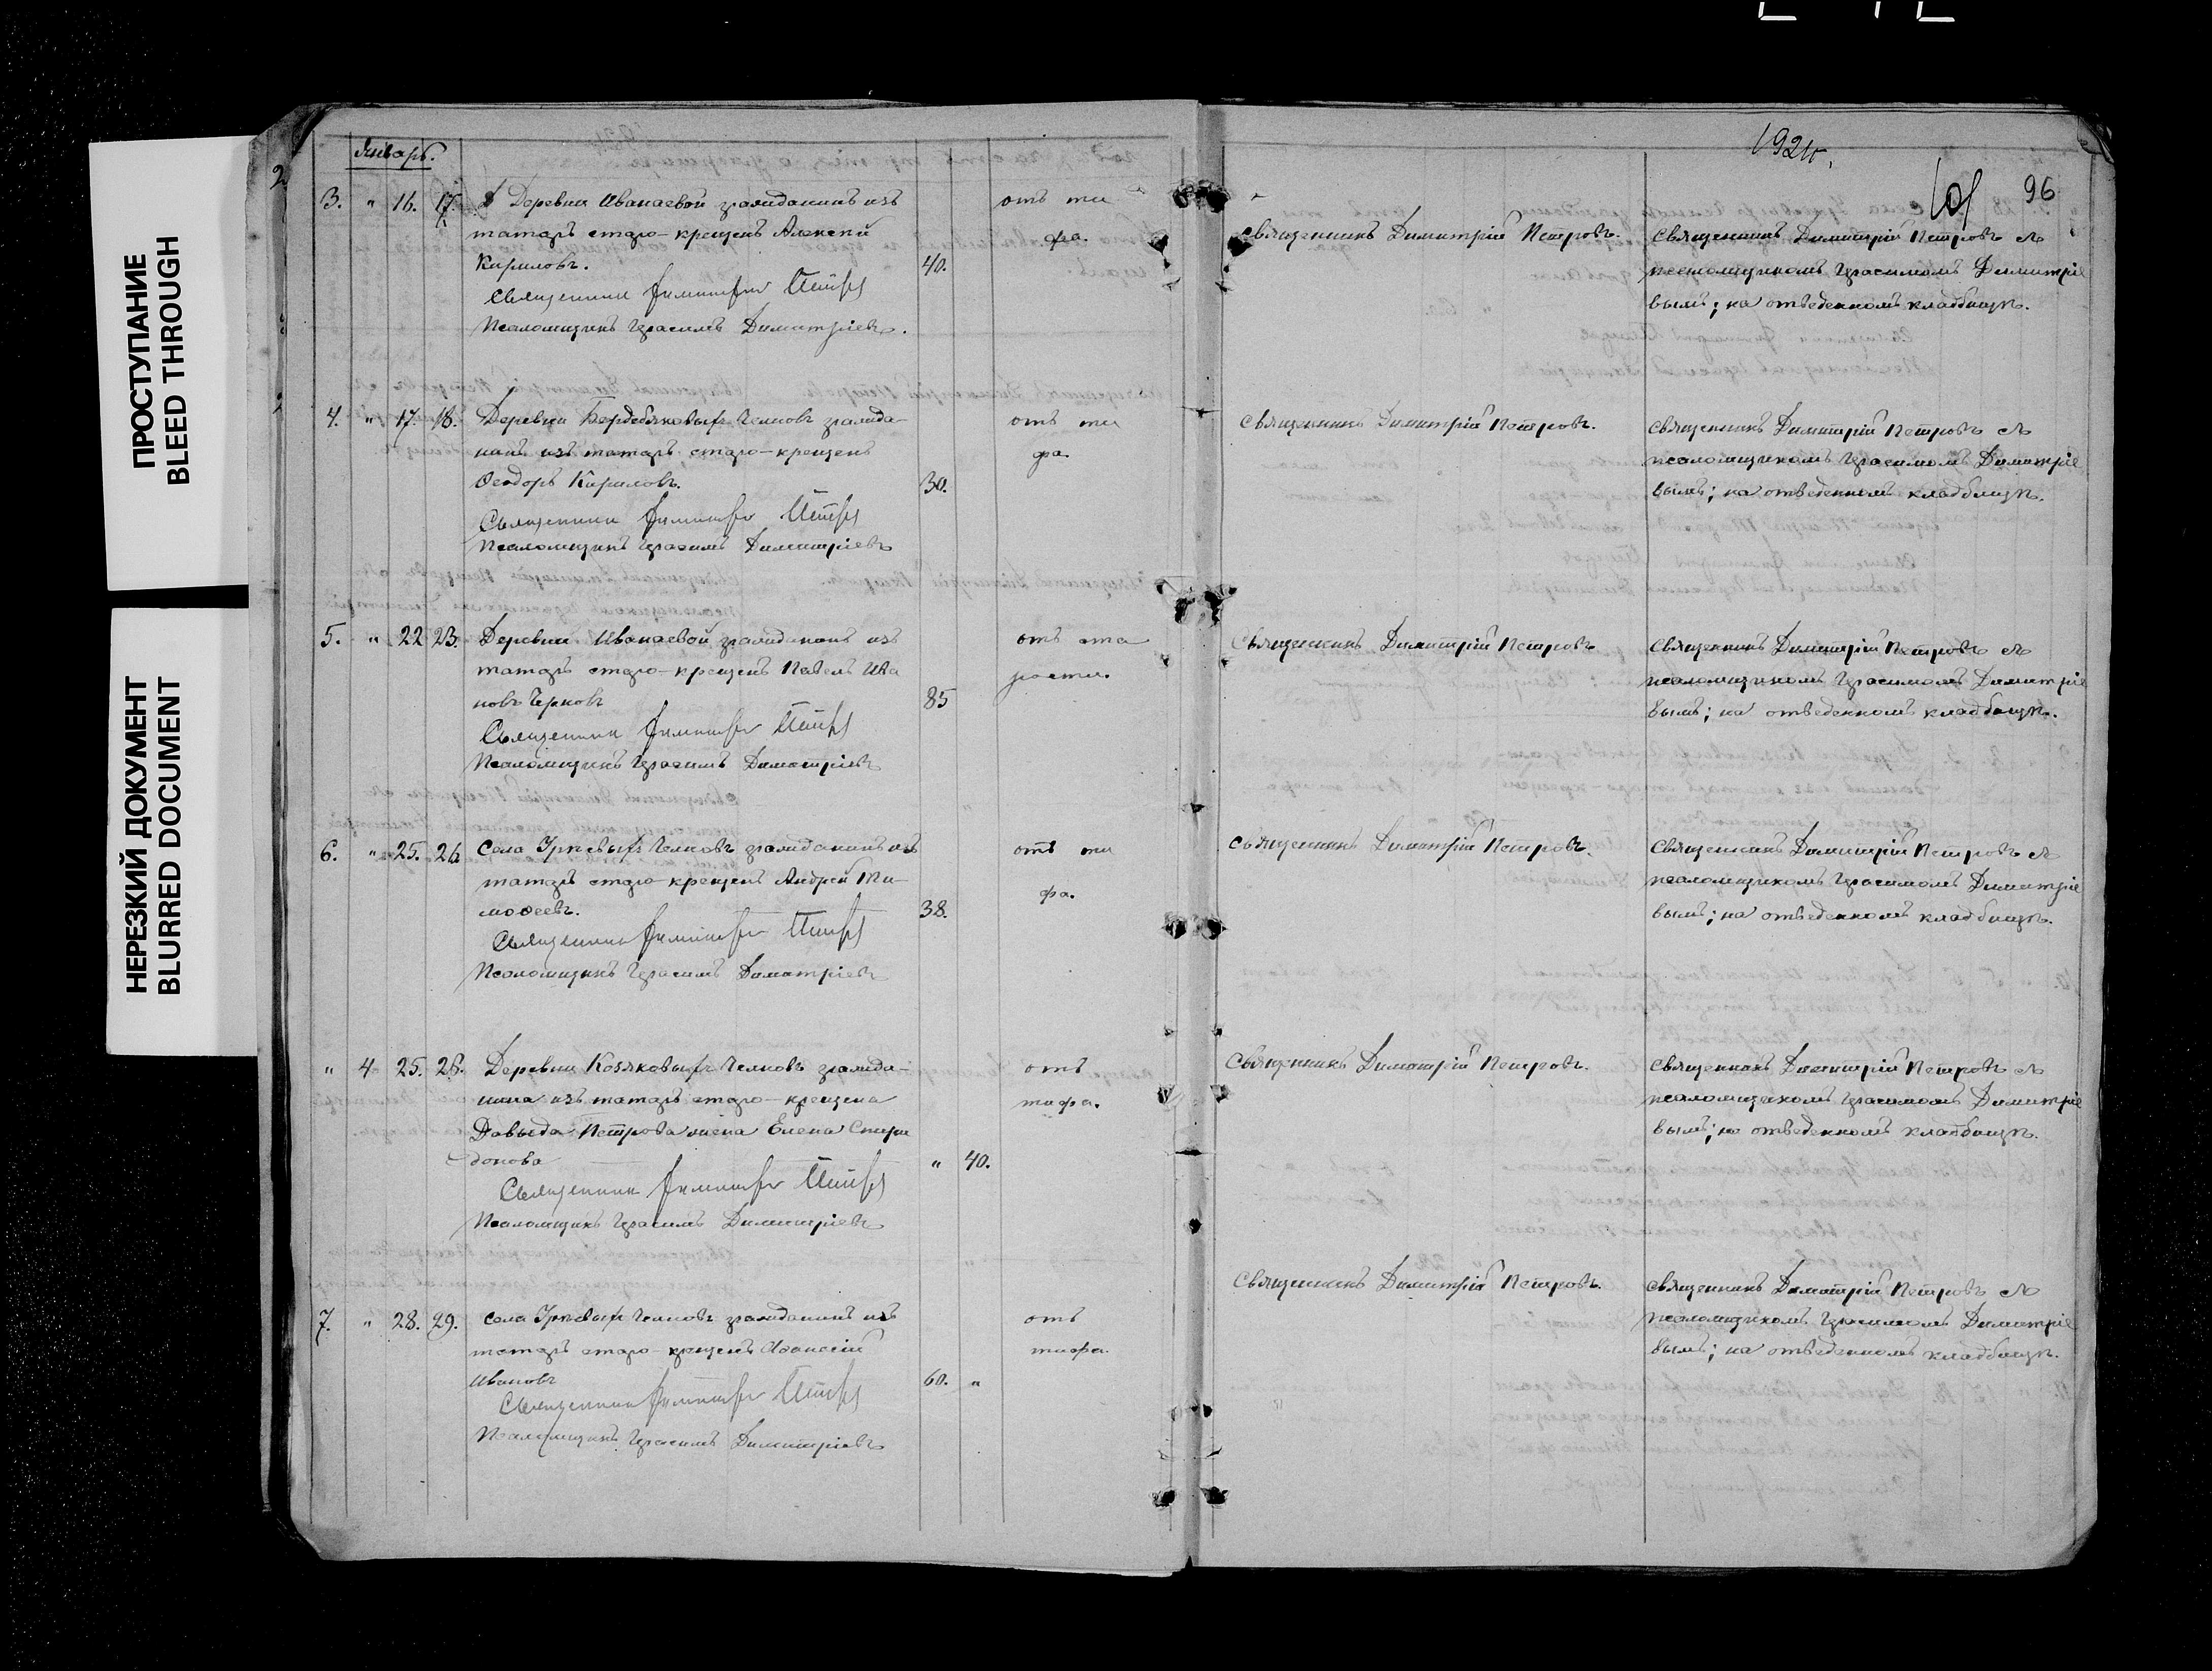 ПРОСТУПАНИЕ
BLEED THROUGH
НЕРЕЗКИЙ ДОКУМЕНТ
BLURRED DOCUMENT
Январь.
3. " 16. 17. Деревни Иванаевой гражданинъ изъ
татаръ старо-крещенъ Алексѣй
Кириловъ. 40.
Священникъ Димитрій Петровъ
Псаломщикъ Герасимъ Димитріевъ.
отъ ти
фа.
4. " 17. 18. Деревни Бердебяковыхъ Челновъ гражда-
нинъ изъ татаръ старо-крещенъ
Ѳеодоръ Кириловъ. 30.
Священникъ Димитрій Петровъ
Псаломщикъ Герасимъ Димитріевъ
отъ ти
фа.
5. " 22 23. Деревни Иванаевой гражданинъ изъ
татаръ старо-крещенъ Павелъ Ива
новъ Черновъ 85
Священникъ Димитрій Петровъ
Псаломщикъ Герасимъ Димитріевъ
отъ ста
рости.
6. " 25. 26 Села Урѣевыхъ Челновъ гражданинъ изъ
татаръ старо-крещенъ Андрей Ти-
моѳеевъ. 38.
Священникъ Димитрій Петровъ
Псаломщикъ Герасимъ Димитріевъ
отъ ти
фа.
" 4 25. 26. Деревни Козяковыхъ Челновъ гражда-
нина изъ татаръ старо-крещена
Давыда Петрова жена Елена Спири
донова " 40.
Священникъ Димитрій Петровъ
Псаломщикъ Герасимъ Димитріевъ
отъ
тифа.
7. " 28. 29. Села Урѣевыхъ Челновъ гражданинъ изъ
татаръ старо-крещенъ Аѳанасій
Ивановъ 60. "
Священникъ Димитрій Петровъ
Псаломщикъ Герасимъ Димитріевъ
отъ
тифа.
96
Священникъ Димитрій Петровъ.
Священникъ Димитрій Петровъ съ
псаломщикомъ Герасимомъ Димитріе
вымъ; на отведенномъ кладбищѣ.
Священникъ Димитрій Петровъ.
Священникъ Димитрій Петровъ съ
псаломщикомъ Герасимомъ Димитріе
вымъ; на отведенномъ кладбищѣ.
Священникъ Димитрій Петровъ
Священникъ Димитрій Петровъ съ
псаломщикомъ Герасимомъ Димитріе
вымъ; на отведенномъ кладбищѣ.
Священникъ Димитрій Петровъ.
Священникъ Димитрій Петровъ съ
псаломщикомъ Герасимомъ Димитріе
вымъ; на отведенномъ кладбищѣ.
Священникъ Димитрій Петровъ.
Священникъ Димитрій Петровъ съ
псаломщикомъ Герасимомъ Димитріе
вымъ; на отведенномъ кладбищѣ.
Священникъ Димитрій Петровъ.
Священникъ Димитрій Петровъ съ
псаломщикомъ Герасимомъ Димитріе
вымъ; на отведенномъ кладбищѣ.